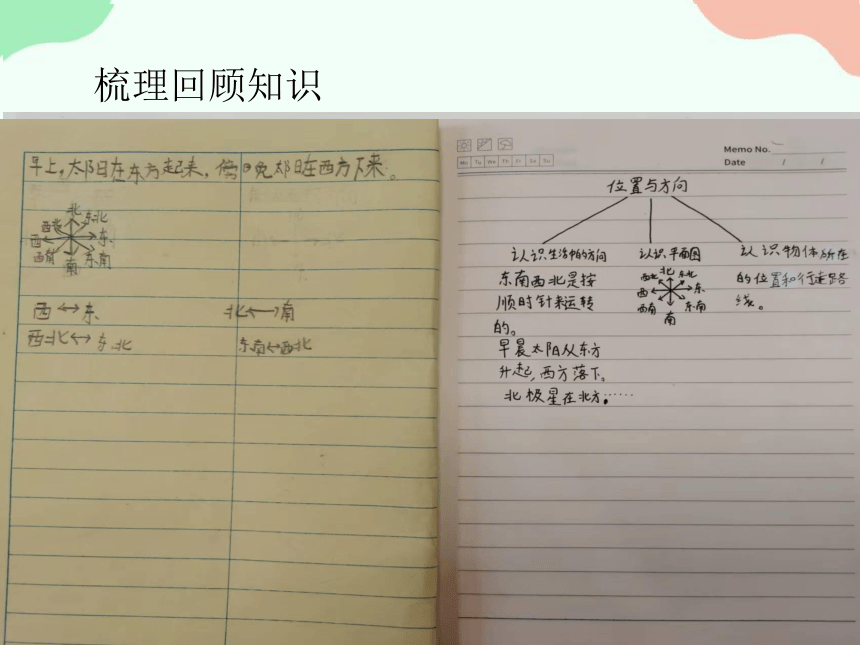 梳理回顾知识
早上,太阳在东方起来,傍晚太阳在西方下来。
北
西北 东北
西 东
西南 东南
南
西↔东 北↔南
西北↔东北 东南↔西北
Memo No.
Mo Tu We Th Fr Sa Su
Date / /
位置与方向
认识生活中的方向 认识平面图 认识物体所在
的位置和行走路
线。
东南西北是按
顺时针来运转
的。
早晨太阳从东方
升起,西方落下。
北极星在北方。……
北
西北 东北
西 东
西南 东南
南